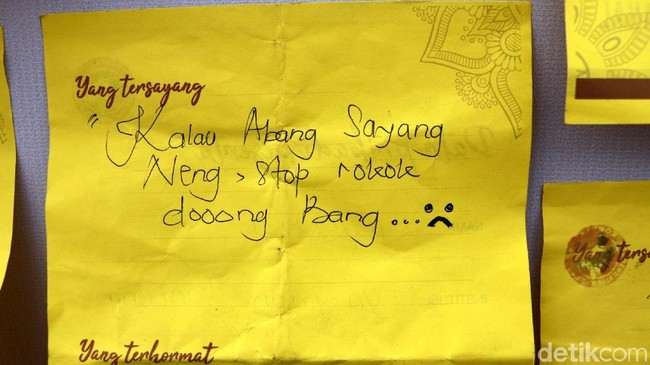 Yang tersayang
"Kalau Abang Sayang
Neng, stop rokok
dooong Bang...
Yang terhormat
Yang tersa
detikcom